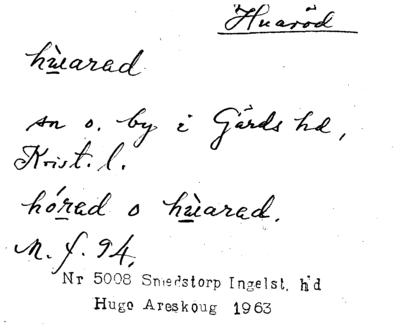 Huaröd
hùarad
sn o. by i Gärds hd,
Krist. l.
hórad o hùarad.
M. f. 94.
Nr 5008 Smedstorp Ingelst. h'd
Hugo Areskoug 1963